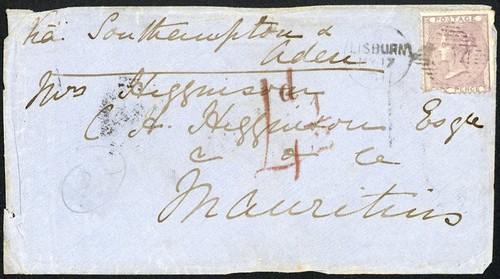 via Southampton &
Aden
LISBURN
17
POSTAGE
PENCE
Mrs Higginson
C A Higginson Esqre
1d
4
Mauritius